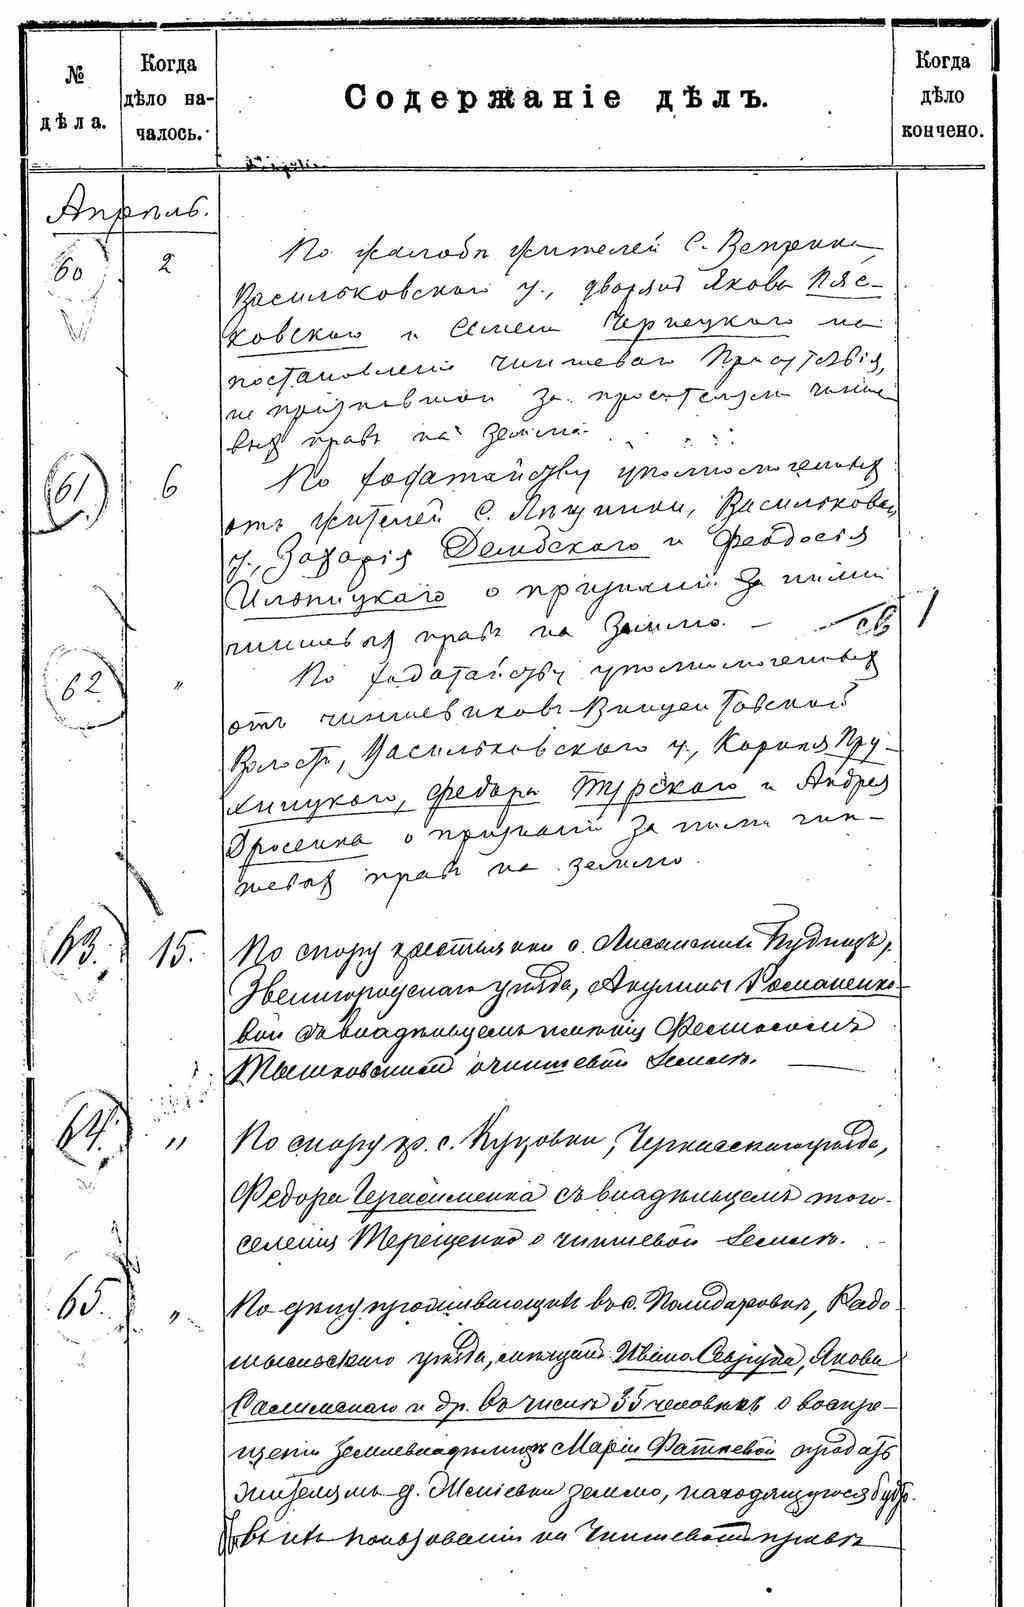 № дѣла.
Когда дѣло на-чалось.
Содержаніе дѣлъ.
Когда дѣло кончено.
Апрѣль.
60 2 По жалобѣ жителей с. Веприка
Васильковскаго у., дворянъ Якова Пяс-
ковскаго и Семена Чернецкаго на
постановленіе чиншеваго Присутствія,
не признавшаго за просителями чинше
выхъ правъ на землю.
61 6 По ходатайству уполномоченныхъ
отъ жителей с. Васильковск.
у., Захарія Дембскаго и Феодосія
Ильницкаго о признаніи за ними
чиншевыхъ правъ на землю. —
62 " По ходатайству уполномоченныхъ
отъ чиншевиковъ Винцентовской
Волости, Васильковскаго у., Корнея Пру-
жницкаго, Федора Турскаго и Андрея
Дросенка о признаніи за ними чин-
шевыхъ правъ на землю.
63. 15. По спору крестьянки с. Лисянки
Звенигородскаго уѣзда, Акулины Романенко-
вой съ владѣльцемъ имѣнія
Тышковскимъ о чиншевой землѣ.
64. " По спору кр. с. Куцовки, Черкасскаго уѣзда,
Федора Герасименка съ владѣльцемъ того
селенія Терещенко о чиншевой землѣ.
65. " По дѣлу проживающихъ въ с. Полидаровкѣ, Радо
мысльскаго уѣзда, мѣщанъ Ивана Якова
Салимскаго и др. въ числѣ 35 человѣкъ о воспре-
щеніи землевладѣлицѣ Маріи Фаткевой продать
жителямъ д. землю, находящуюся будто
бы въ ихъ пользованіи на Чиншевомъ правѣ